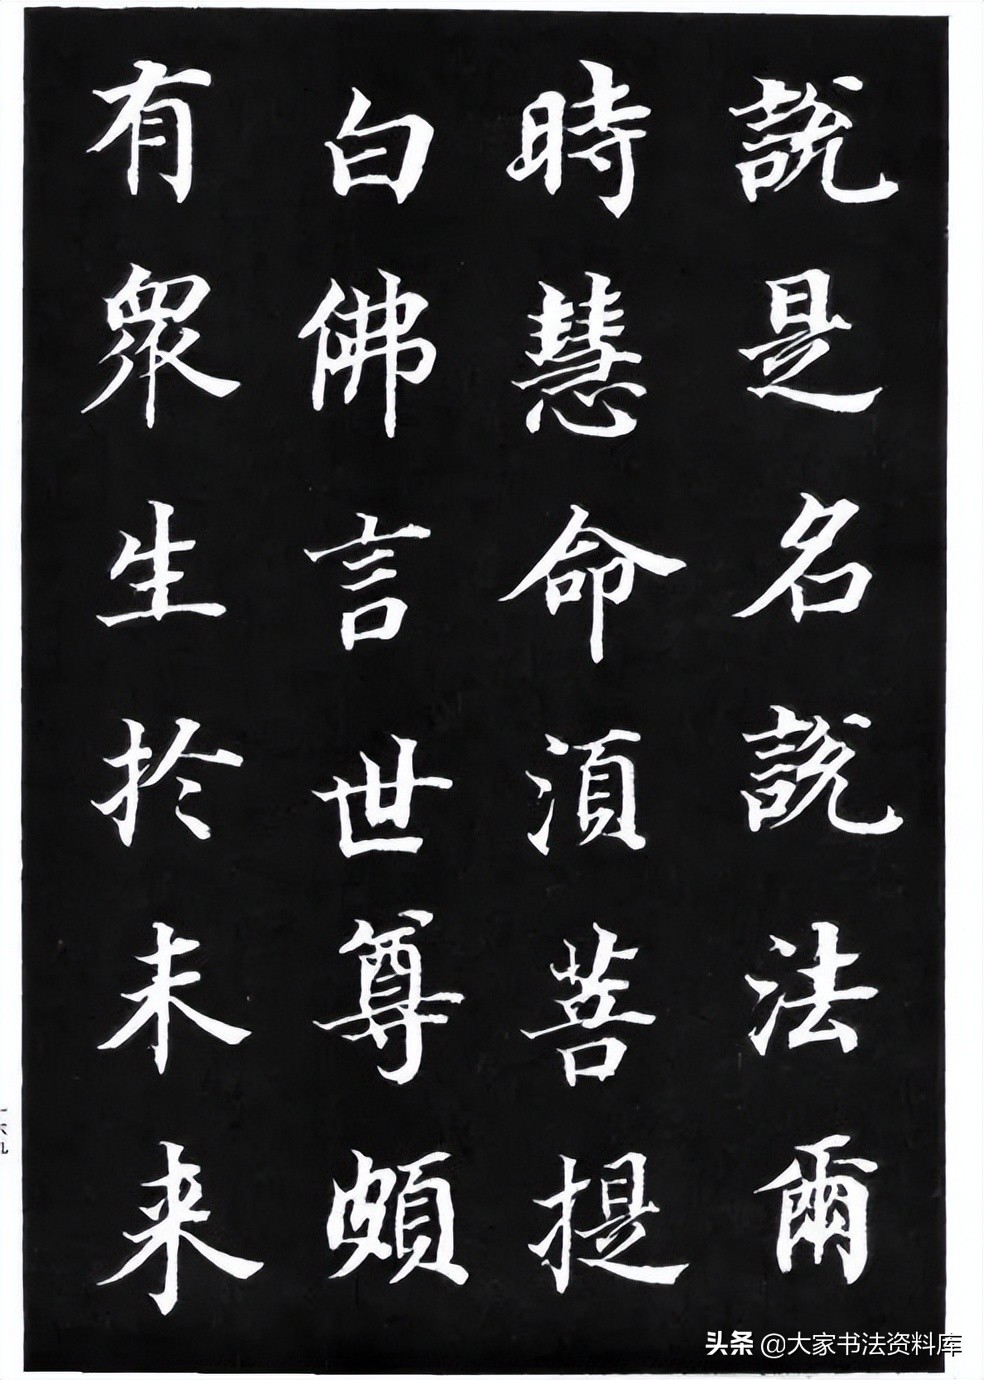 說是名說法爾
時慧命須菩提
白佛言世尊頗
有眾生於未来
一六九
头条 @大家书法资料库